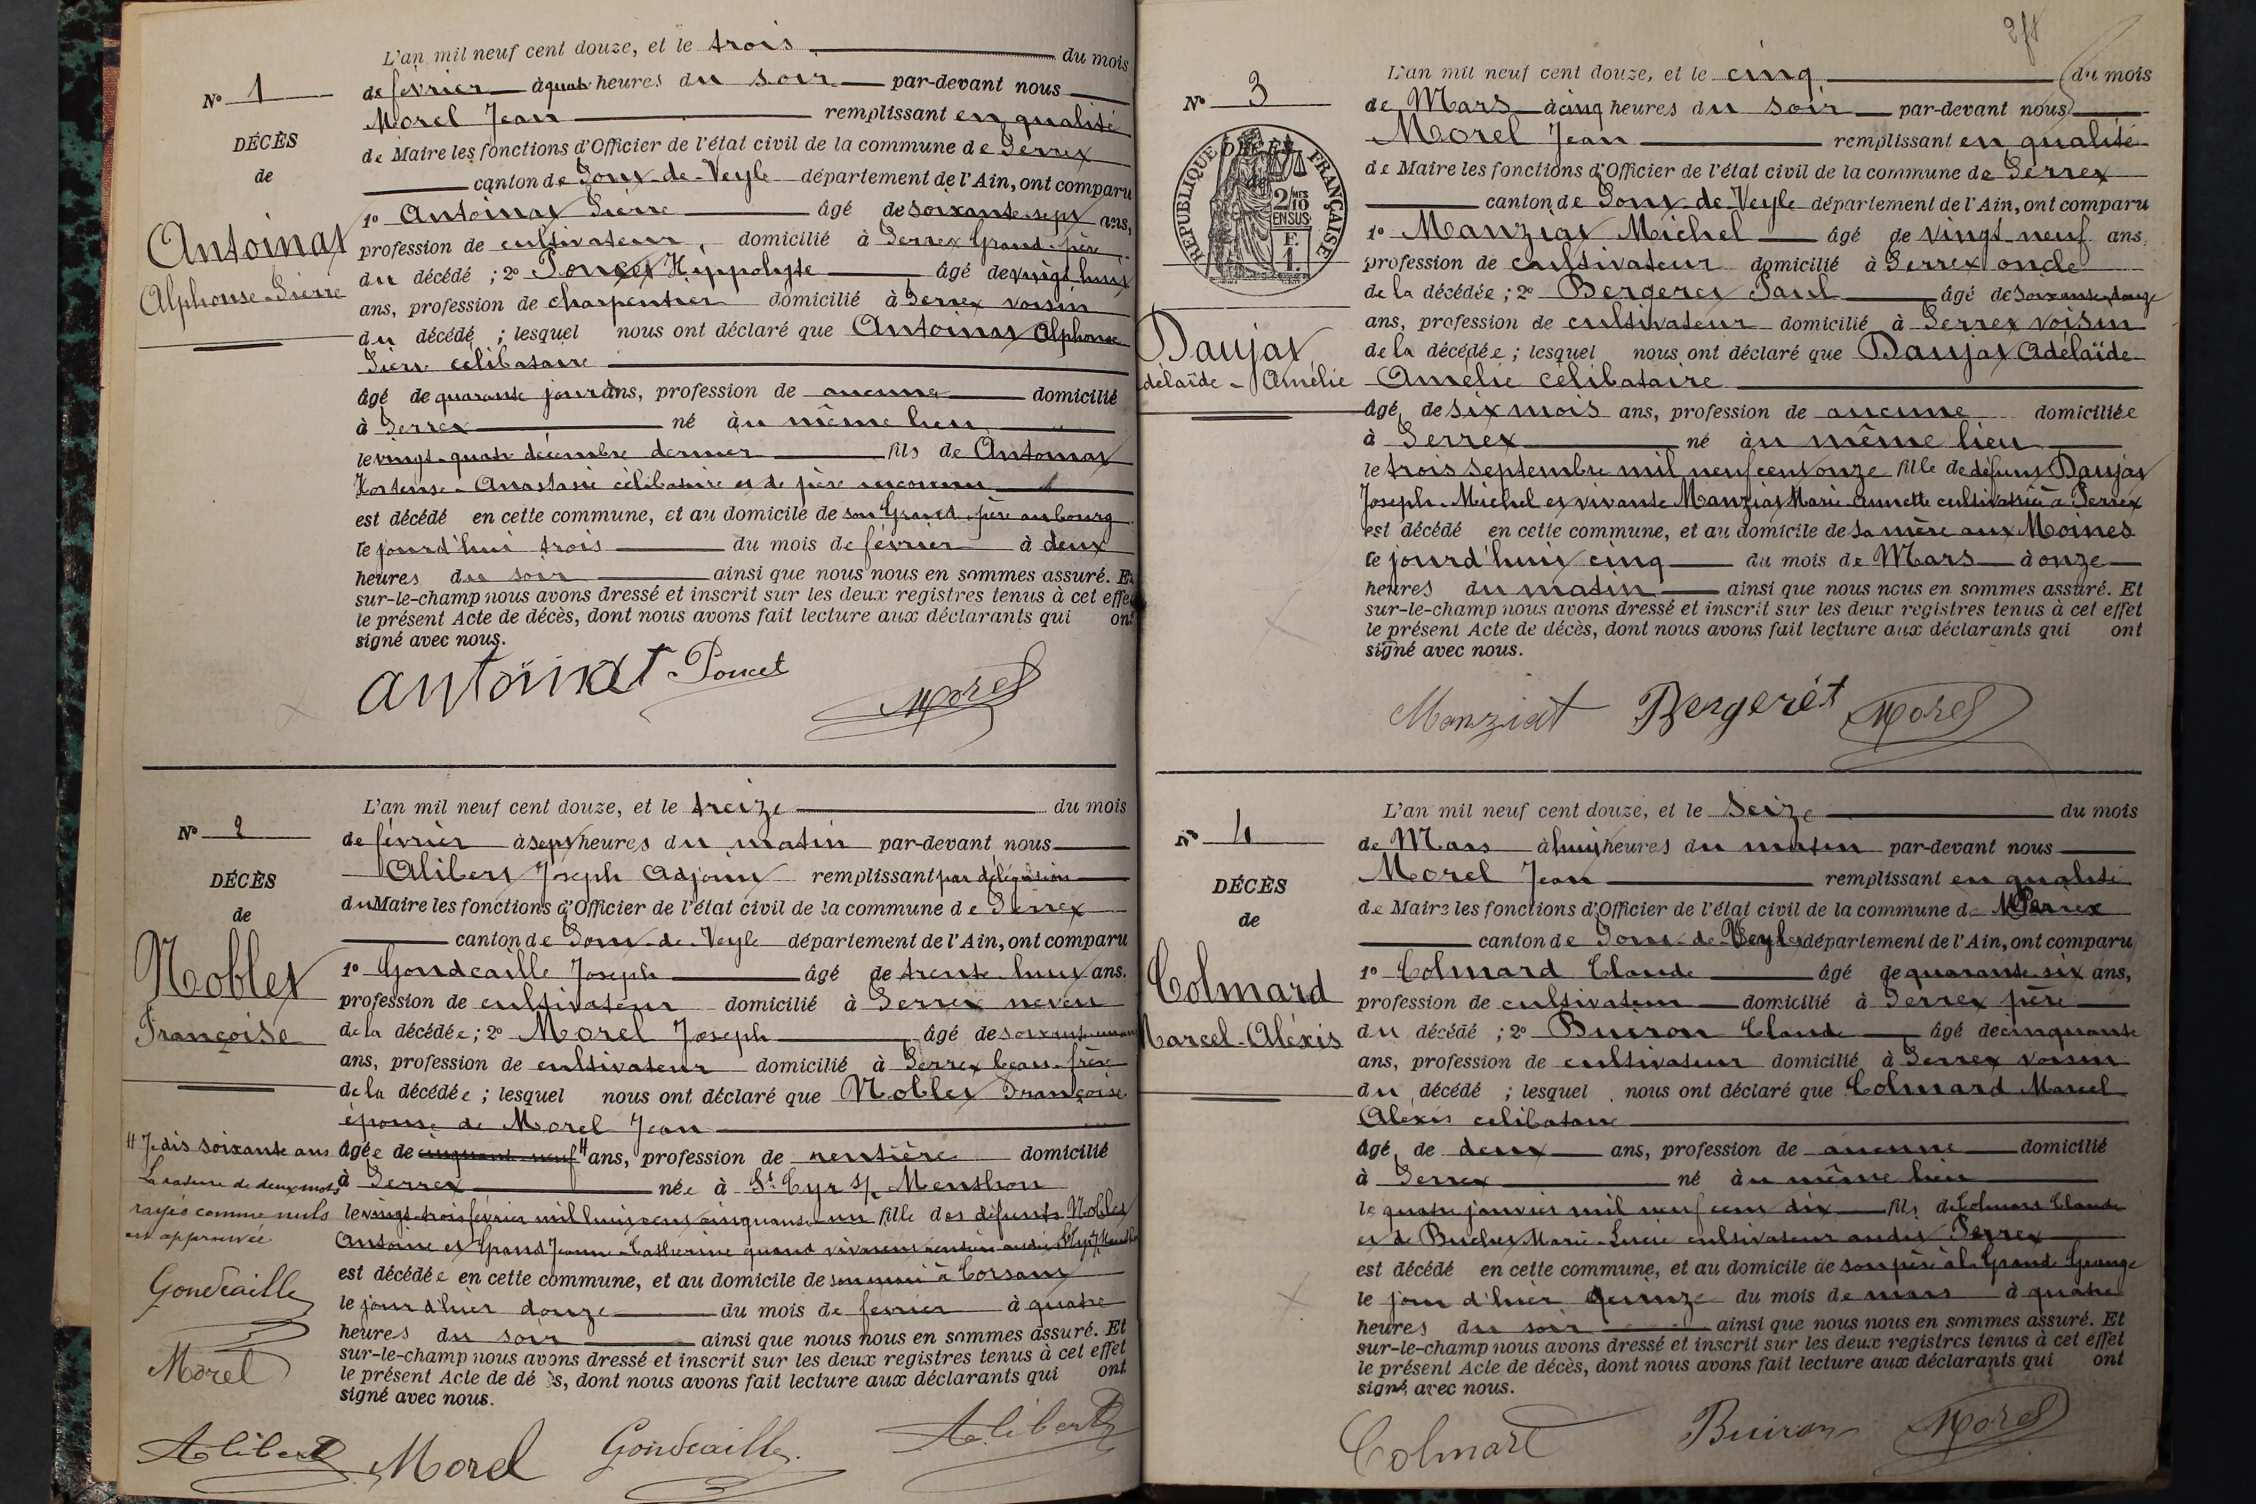 L'an mil neuf cent douze, et le trois du mois
de février à quatre heures du soir par-devant nous
Morel Jean remplissant en qualité
de Maire les fonctions d'Officier de l'état civil de la commune de Perrex
canton de Pont-de-Veyle département de l'Ain, ont comparu
1º Antoinat Pierre âgé de soixante-sept ans,
profession de cultivateur, domicilié à Perrex Grand-père
du décédé ; 2º Poncet Hippolyte âgé de vingt huit
ans, profession de charpentier domicilié à Perrex voisin
du décédé ; lesquel nous ont déclaré que Antoinat Alphonse
Pierre célibataire
âgé de quarante jours ans, profession de aucune domicilié
à Perrex né au même lieu
le vingt-quatre décembre dernier fils de Antoinat
Hortense-Anastasie célibataire et de père inconnu
est décédé en cette commune, et au domicile de son Grand-père au bourg
le jourd'hui trois du mois de février à deux
heures du soir ainsi que nous nous en sommes assuré. Et
sur-le-champ nous avons dressé et inscrit sur les deux registres tenus à cet effet
le présent Acte de décès, dont nous avons fait lecture aux déclarants qui ont
signé avec nous.
Nº 1
DÉCÈS
de
Antoinat
Alphonse-Pierre
antoinat Poncet Morel
L'an mil neuf cent douze, et le treize du mois
de février à sept heures du matin par-devant nous
Alibert Joseph Adjoint remplissant par délégation
du Maire les fonctions d'Officier de l'état civil de la commune de Perrex
canton de Pont-de-Veyle département de l'Ain, ont comparu
1º Gondcaille Joseph âgé de trente huit ans.
profession de cultivateur domicilié à Perrex neveu
de la décédée ; 2º Morel Joseph âgé de soixante un
ans, profession de cultivateur domicilié à Perrex beau-frère
de la décédée ; lesquel nous ont déclaré que Noblet Françoise
épouse de Morel Jean
âgée de cinquante-neuf # ans, profession de rentière domicilié
à Perrex née à St Cyr s/ Menthon
le vingt-trois février mil huit cent cinquante-un fille des défunts Noblet
Antoine et Grand Jeanne-Catherine quand vivaient rentiers audit St Cyr s/ Menthon
est décédée en cette commune, et au domicile de son mari à Corsant
le jour d'hier douze du mois de février à quatre
heures du soir ainsi que nous nous en sommes assuré. Et
sur-le-champ nous avons dressé et inscrit sur les deux registres tenus à cet effet
le présent Acte de dé s, dont nous avons fait lecture aux déclarants qui ont
signé avec nous.
Nº 2
DÉCÈS
de
Noblet
Françoise
# Je dis soixante ans
La rature de deux mots
rayés comme nuls
est approuvée
Gondcaille
Morel
Alibert Morel Gondcaille Alibert
L'an mil neuf cent douze, et le cinq du mois
de Mars à cinq heures du soir par-devant nous
Morel Jean remplissant en qualité
de Maire les fonctions d'Officier de l'état civil de la commune de Perrex
canton de Pont-de-Veyle département de l'Ain, ont comparu
1º Manziat Michel âgé de vingt-neuf ans,
profession de cultivateur domicilié à Perrex oncle
de la décédée ; 2º Bergeret Paul âgé de soixante-douze
ans, profession de cultivateur domicilié à Perrex voisin
de la décédée ; lesquel nous ont déclaré que Daujat Adélaïde
Amélie célibataire
âgé, de six mois ans, profession de aucune domiciliée
à Perrex né au même lieu
le trois septembre mil neuf cent onze fille de défunt Daujat
Joseph-Michel et vivante Manziat Marie Annette cultivatrice à Perrex
est décédé en cette commune, et au domicile de sa mère aux Moines
le jourd'hui cinq du mois de Mars à onze
heures du matin ainsi que nous nous en sommes assuré. Et
sur-le-champ nous avons dressé et inscrit sur les deux registres tenus à cet effet
le présent Acte de décès, dont nous avons fait lecture aux déclarants qui ont
signé avec nous.
Nº 3
RÉPUBLIQUE FRANÇAISE
DÉCÈS
de
2/10 MES
EN SUS
F.
1.
Daujat
Adélaïde-Amélie
Manziat Bergeret Morel
L'an mil neuf cent douze, et le Seize du mois
de Mars à huit heures du matin par-devant nous
Morel Jean remplissant en qualité
de Maire les fonctions d'Officier de l'état civil de la commune de Perrex
canton de Pont-de-Veyle département de l'Ain, ont comparu
1º Colmard Claude âgé de quarante-six ans,
profession de cultivateur domicilié à Perrex père
du décédé ; 2º Buiron Claude âgé de cinquante
ans, profession de cultivateur domicilié à Perrex voisin
du décédé ; lesquel nous ont déclaré que Colmard Marcel
Alexis celibataire
âgé, de deux ans, profession de aucune domicilié
à Perrex né au même lieu
le quatre janvier mil neuf cent dix fils de Colmard Claude
et de Buchet Marie-Lucie cultivateurs audit Perrex
est décédé en cette commune, et au domicile de son père à la Grande Grange
le jour d'hier quinze du mois de mars à quatre
heures du soir ainsi que nous nous en sommes assuré. Et
sur-le-champ nous avons dressé et inscrit sur les deux registres tenus à cet effet
le présent Acte de décès, dont nous avons fait lecture aux déclarants qui ont
signé, avec nous.
Nº 4
DÉCÈS
de
Colmard
Marcel-Aléxis
Colmard Buiron Morel